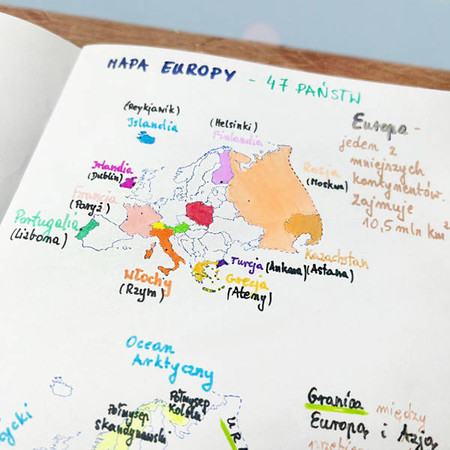 MAPA EUROPY - 47 PAŃSTW
(Reykjavik)
Islandia
(Helsinki)
Finlandia
Irlandia
(Dublin)
Francja
(Paryż)
Portugalia
(Lizbona)
Włochy
(Rzym)
Turcja (Ankara)
Grecja
(Ateny)
Rosja
(Moskwa)
Kazachstan
(Astana)
Europa -
jeden z
mniejszych
kontynentów.
Zajmuje
10,5 mln km²
Ocean
Arktyczny
Półwysep
Kolski
Półwysep
Skandynawski
Granica między
Europą i Azją